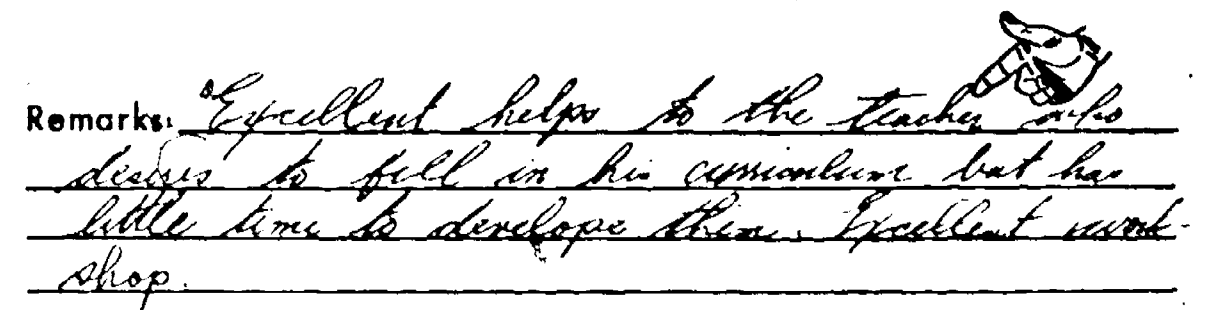 Remarks: Excellent helps to the teacher who
desires to fill in his curriculum but has
little time to develope them. Excellent work-
shop.